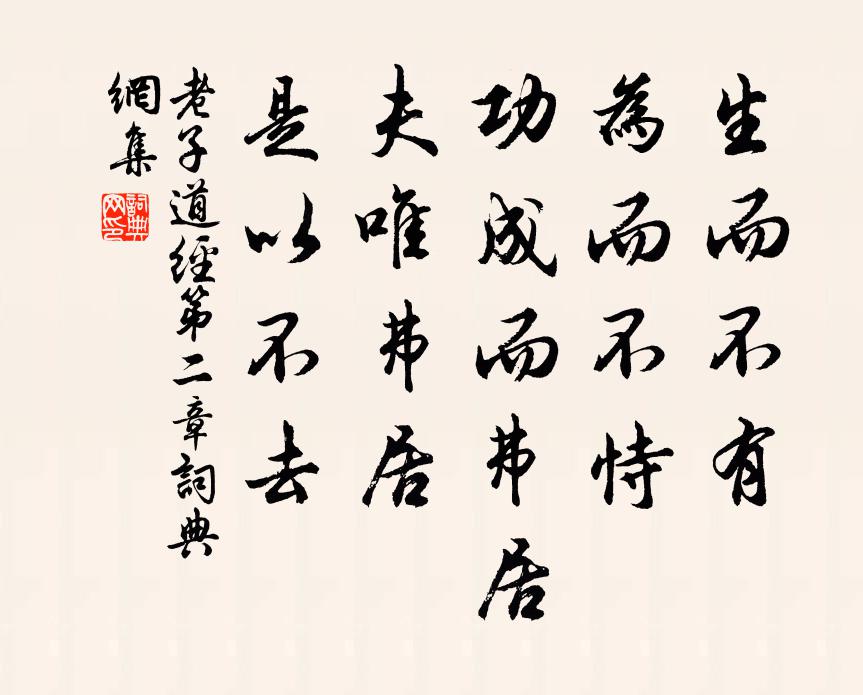 生而不有
為而不恃
功成而弗居
夫唯弗居
是以不去
老子道經第二章詞典
網集
詞典
网印